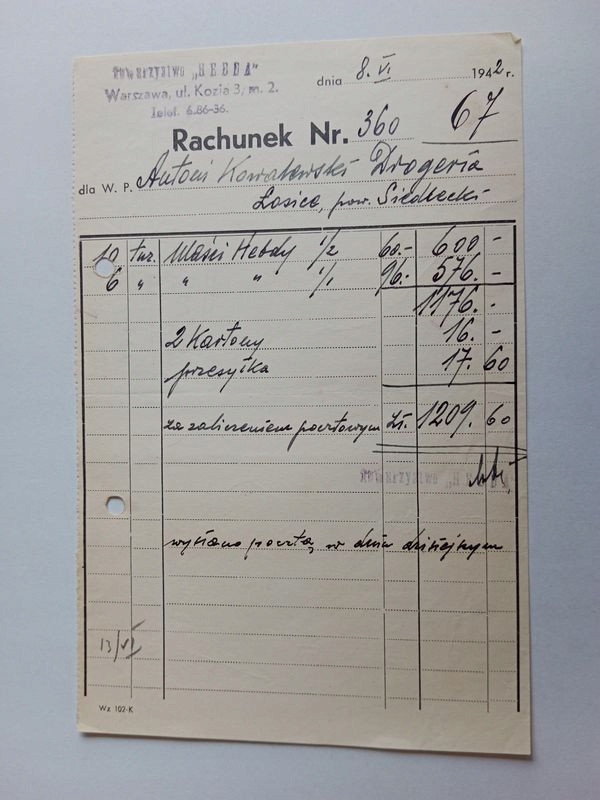 Towarzystwo „HEBDA"
Warszawa, ul. Kozia 3, m. 2.
Telef. 6.86-36.
dnia 8. VI 1942 r.
Rachunek Nr. 360 67
dla W. P. Antoni Kowalewski Drogeria
Łosice, pow. Siedlecki
10 tuz. Maści Hebdy 1/2 60.- 600 -
6 " " " 1/1 96.- 576. -
1176. -
2 Kartony 16. -
przesyłka 17. 60
Za zaliczeniem pocztowym Zł. 1209. 60
Towarzystwo „HEBDA"
wysłano pocztą w dniu dzisiejszym
13/VI
Wz 102-K